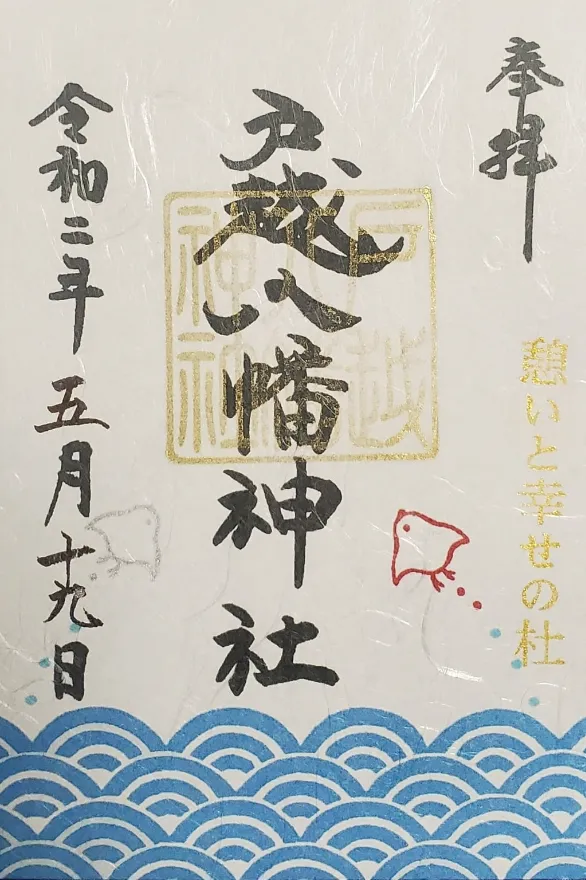 奉拝
憩いと幸せの杜
戸越八幡神社
戸越
八幡
神社
令和二年五月十九日